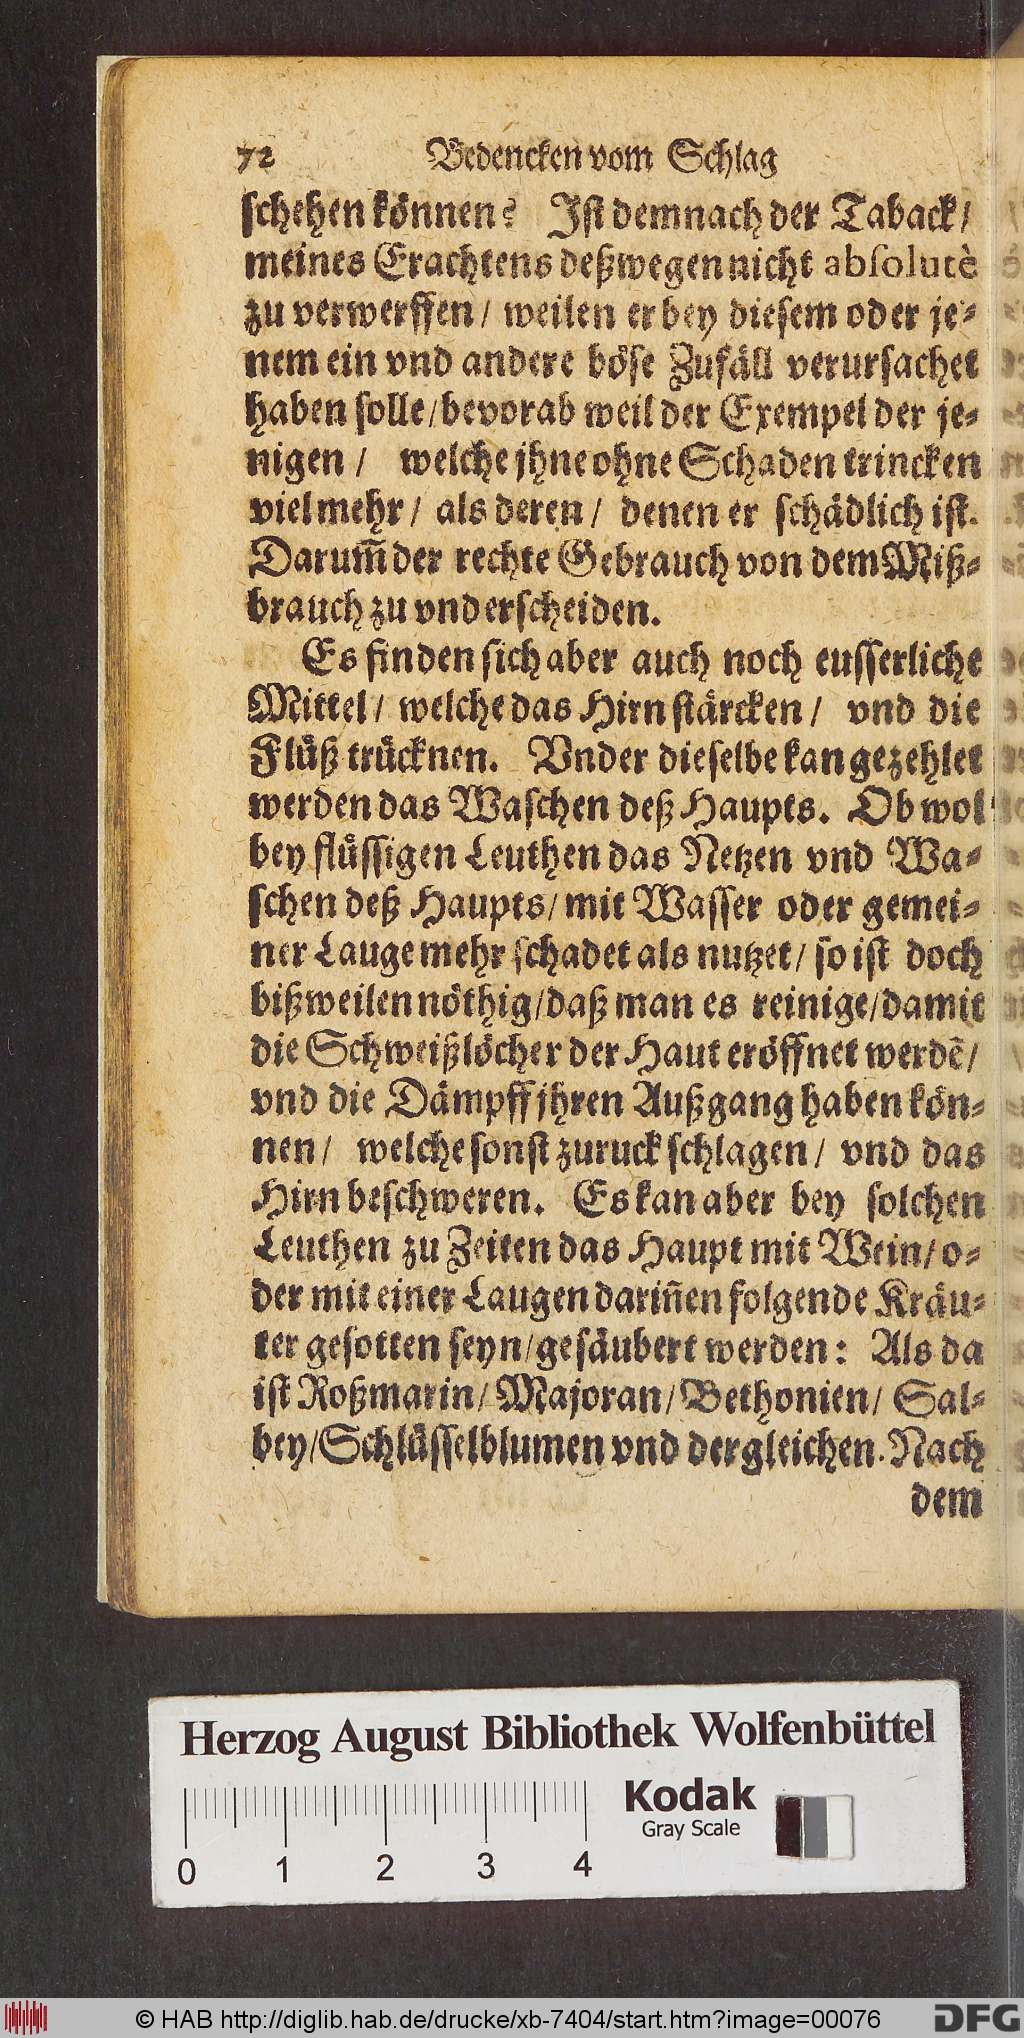 72 Bedencken vom Schlag
schehen können? Ist demnach der Taback/
meines Erachtens deßwegen nicht absolutè
zu verwerffen/ weilen er bey diesem oder je-
nem ein vnd andere böse Zufäll verursachet
haben solle/ bevorab weil der Exempel der je-
nigen/ welche jhne ohne Schaden trincken
viel mehr/ als deren/ denen er schädlich ist.
Darum̃ der rechte Gebrauch von dem Miß-
brauch zu vnderscheiden.
Es finden sich aber auch noch eusserliche
Mittel/ welche das Hirn stärcken/ vnd die
Flüß trücknen. Vnder dieselbe kan gezehlet
werden das Waschen deß Haupts. Ob wol
bey flüssigen Leuthen das Netzen vnd Wa-
schen deß Haupts/ mit Wasser oder gemei-
ner Lauge mehr schadet als nutzet/ so ist doch
bißweilen nöthig/ daß man es reinige/ damit
die Schweißlöcher der Haut eröffnet werdẽ/
vnd die Dämpff jhren Außgang haben kön-
nen/ welche sonst zuruck schlagen/ vnd das
Hirn beschweren. Es kan aber bey solchen
Leuthen zu Zeiten das Haupt mit Wein/ o-
der mit einer Laugen dariñen folgende Kräu-
ter gesotten seyn/ gesäubert werden: Als da
ist Roßmarin/ Majoran/ Bethonien/ Sal-
bey/ Schlüsselblumen vnd dergleichen. Nach
dem
Herzog August Bibliothek Wolfenbüttel
Kodak
Gray Scale
0 1 2 3 4
© HAB http://diglib.hab.de/drucke/xb-7404/start.htm?image=00076
DFG